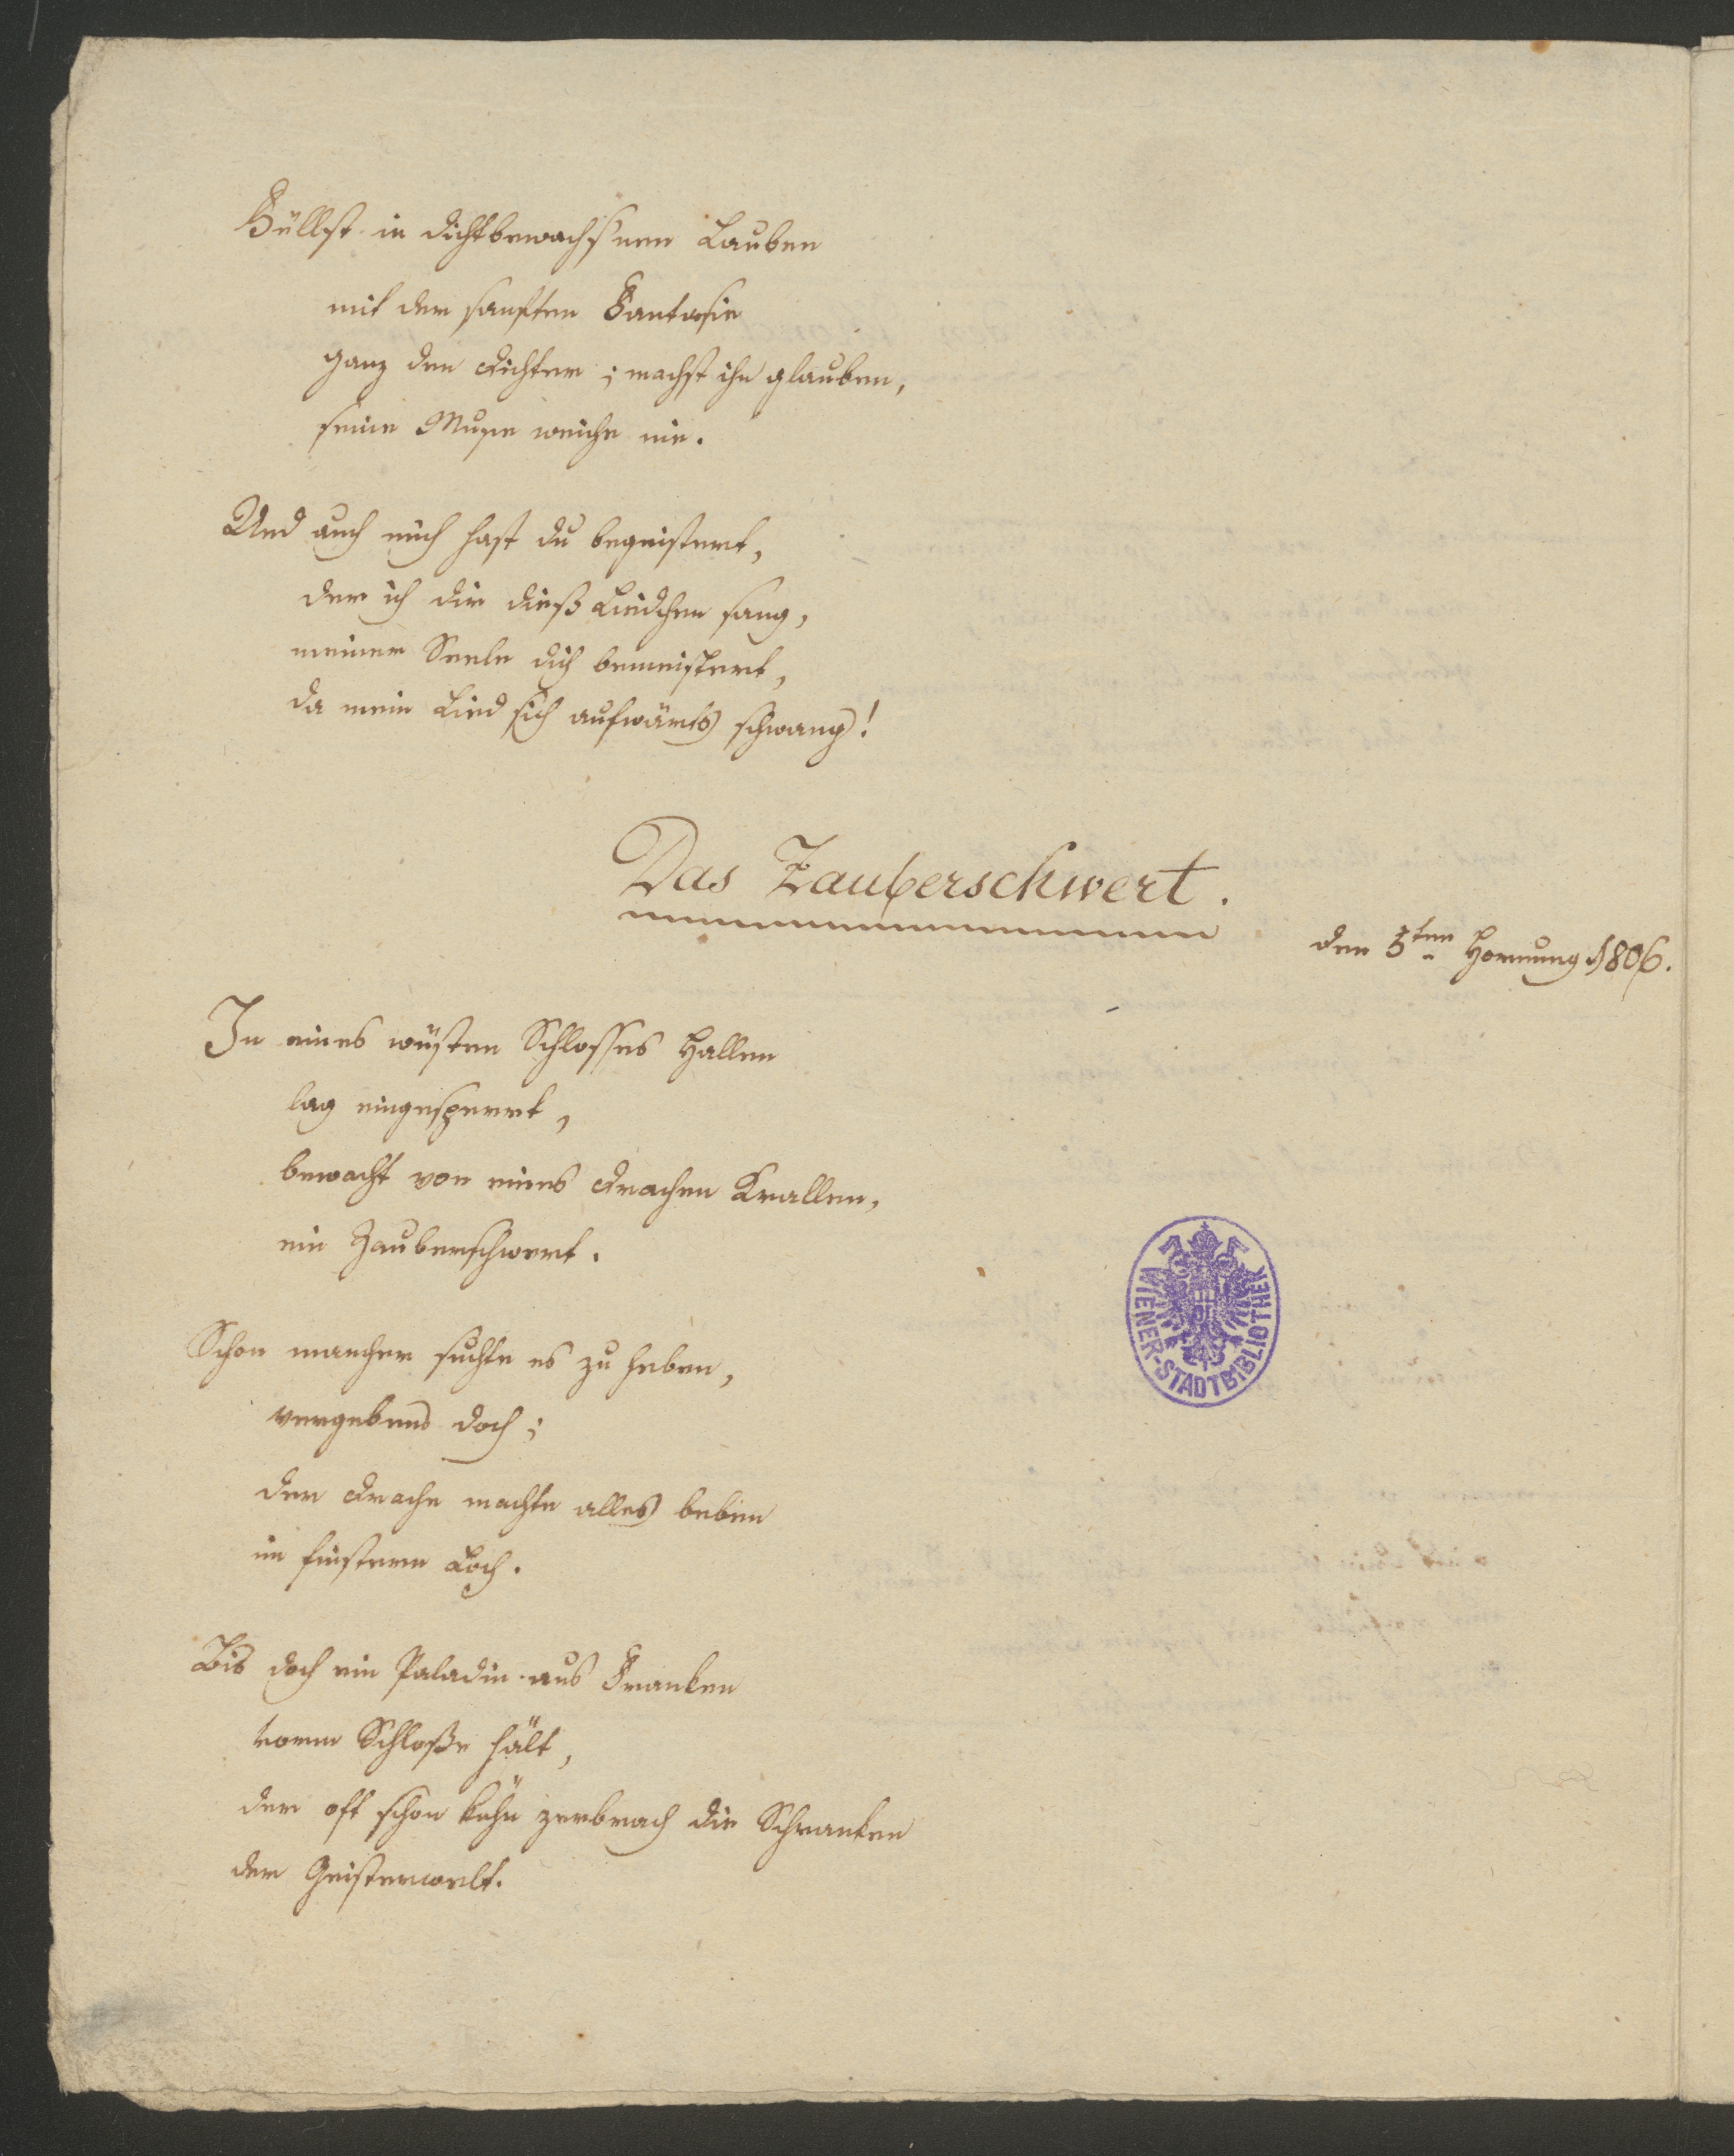 Füllst in dichtbewachsnen Lauben
mit der sanften Fantasie
ganz den Dichter; machst ihn glauben,
seine Muse weiche nie.
Und auch mich hast du begeistert,
der ich dir dieß Liedchen sang,
meiner Seele dich bemeistert,
da mein Lied sich aufwärts schwang!
Das Zauberschwert.
den 5ten Hornung 1806.
In eines wüsten Schlosses Hallen
lag eingesperrt,
bewacht von eines Drachen Krallen,
ein Zauberschwert.
Schon mancher suchte es zu heben,
vergebens doch;
der Drache machte alles beben
im finstern Loch.
Bis doch ein Paladin aus Franken
vorm Schloße hält,
der oft schon kühn zerbrach die Schranken
der Geisterwelt.
WIENER-STADTBIBLIOTHEK